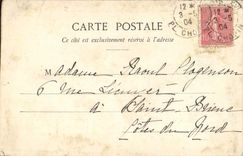 CARTE POSTALE
Ce côté est exclusivement réservé à l'adresse
12
3-5
04
PL. CHO
Madame Raoul Plogenson
6 rue
à Saint Brieuc
Côtes du Nord